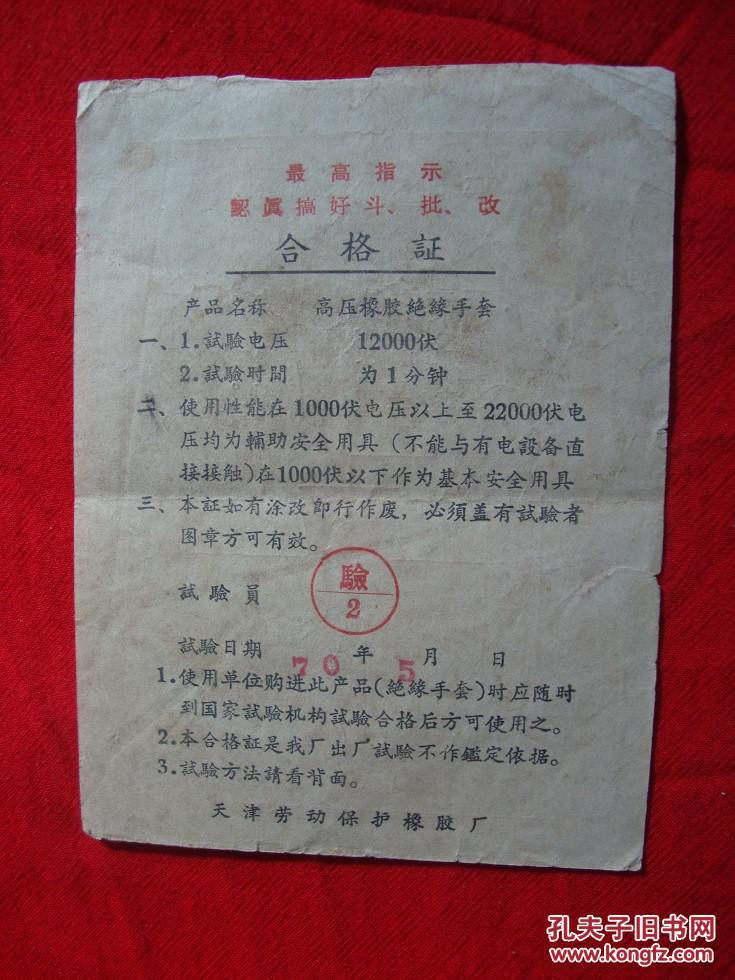 最高指示
認真搞好斗、批、改
合格証
产品名称 高压橡胶絕緣手套
一、1.試驗电压 12000伏
2.試驗时間 为1分钟
二、使用性能在1000伏电压以上至22000伏电
压均为輔助安全用具（不能与有电設备直
接接触）在1000伏以下作为基本安全用具
三、本証如有涂改即行作废，必須盖有試驗者
图章方可有效。
試驗員 驗
2
試驗日期 70年 5月 日
1.使用单位购进此产品(絕緣手套)时应随时
到国家試驗机构試驗合格后方可使用之。
2.本合格証是我厂出厂試驗不作鑑定依据。
3.試驗方法請看背面。
天津劳动保护橡胶厂
孔夫子旧书网
www.kongfz.com